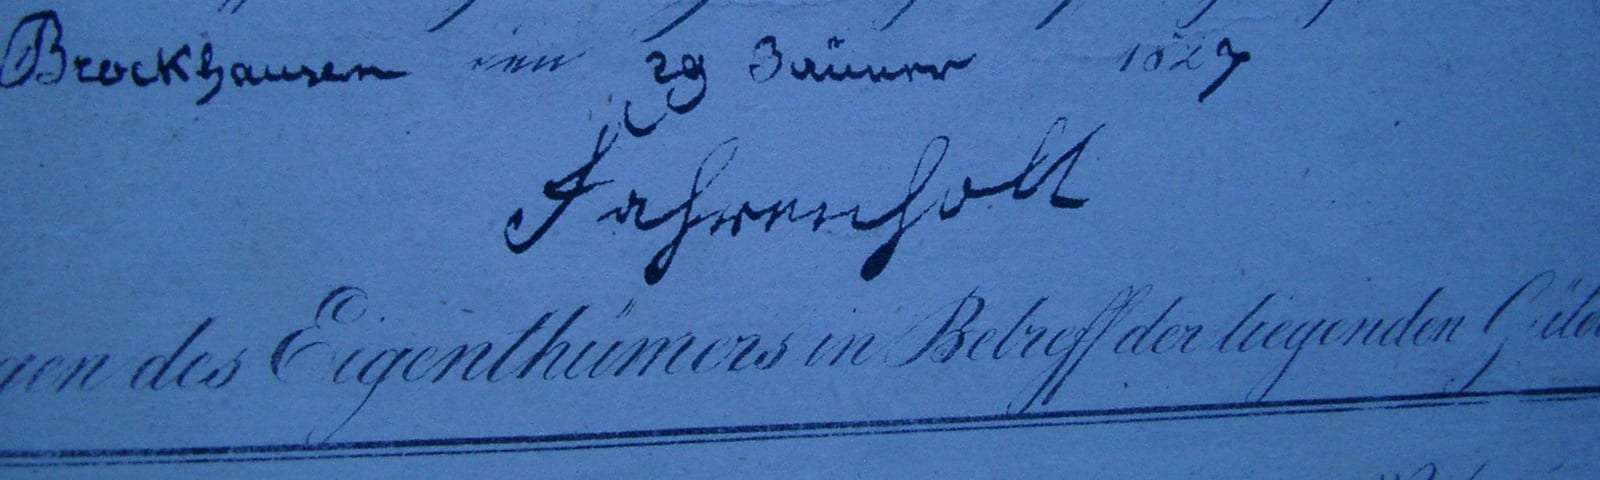 Brockhausen den 29 Jänner 1827
Fahrenholt
gen des Eigenthümers in Betreff der liegenden Güte